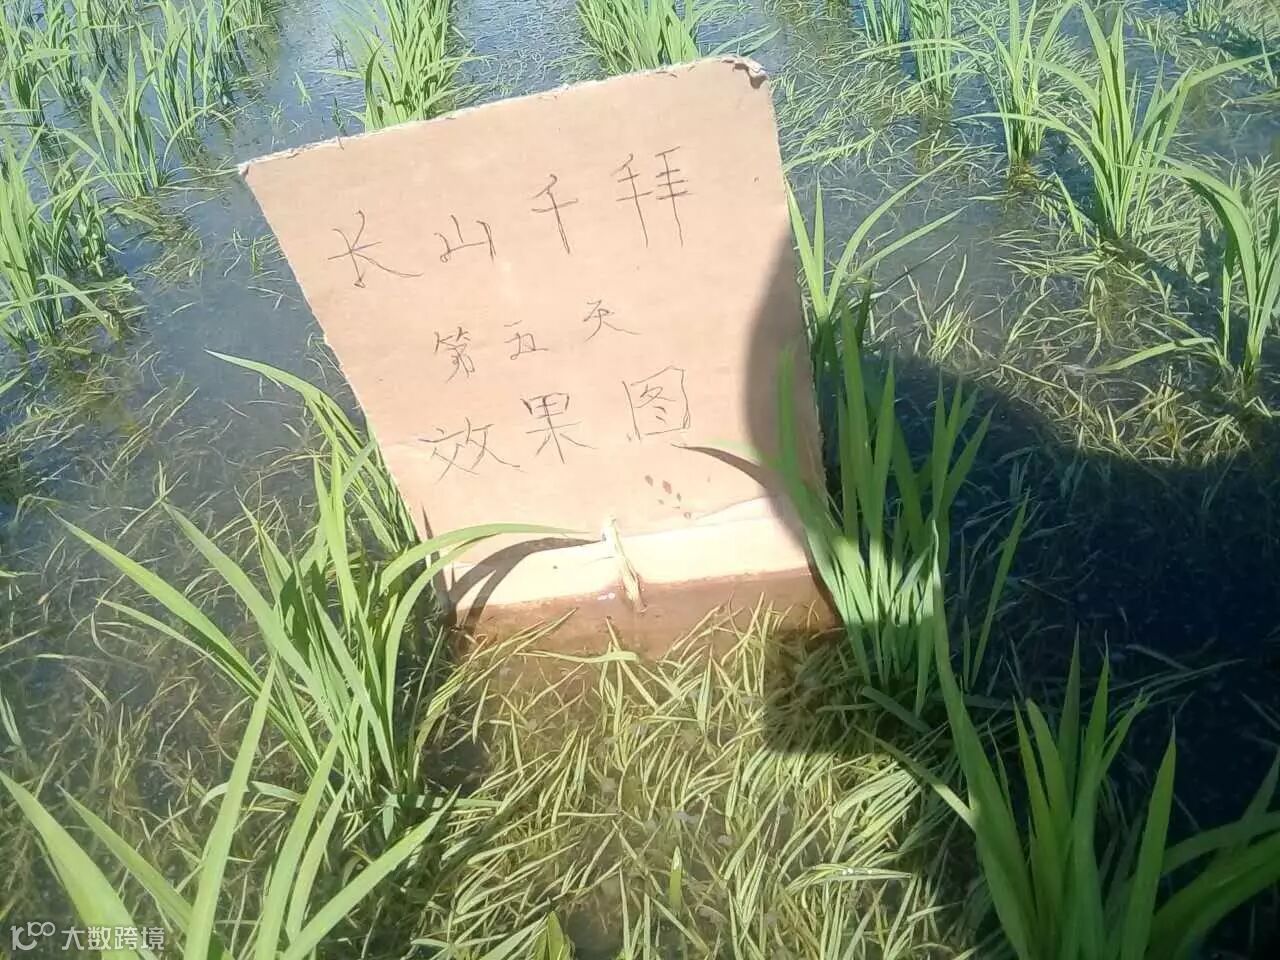 长山千拜
第五天
效果图
10100 大数跨境